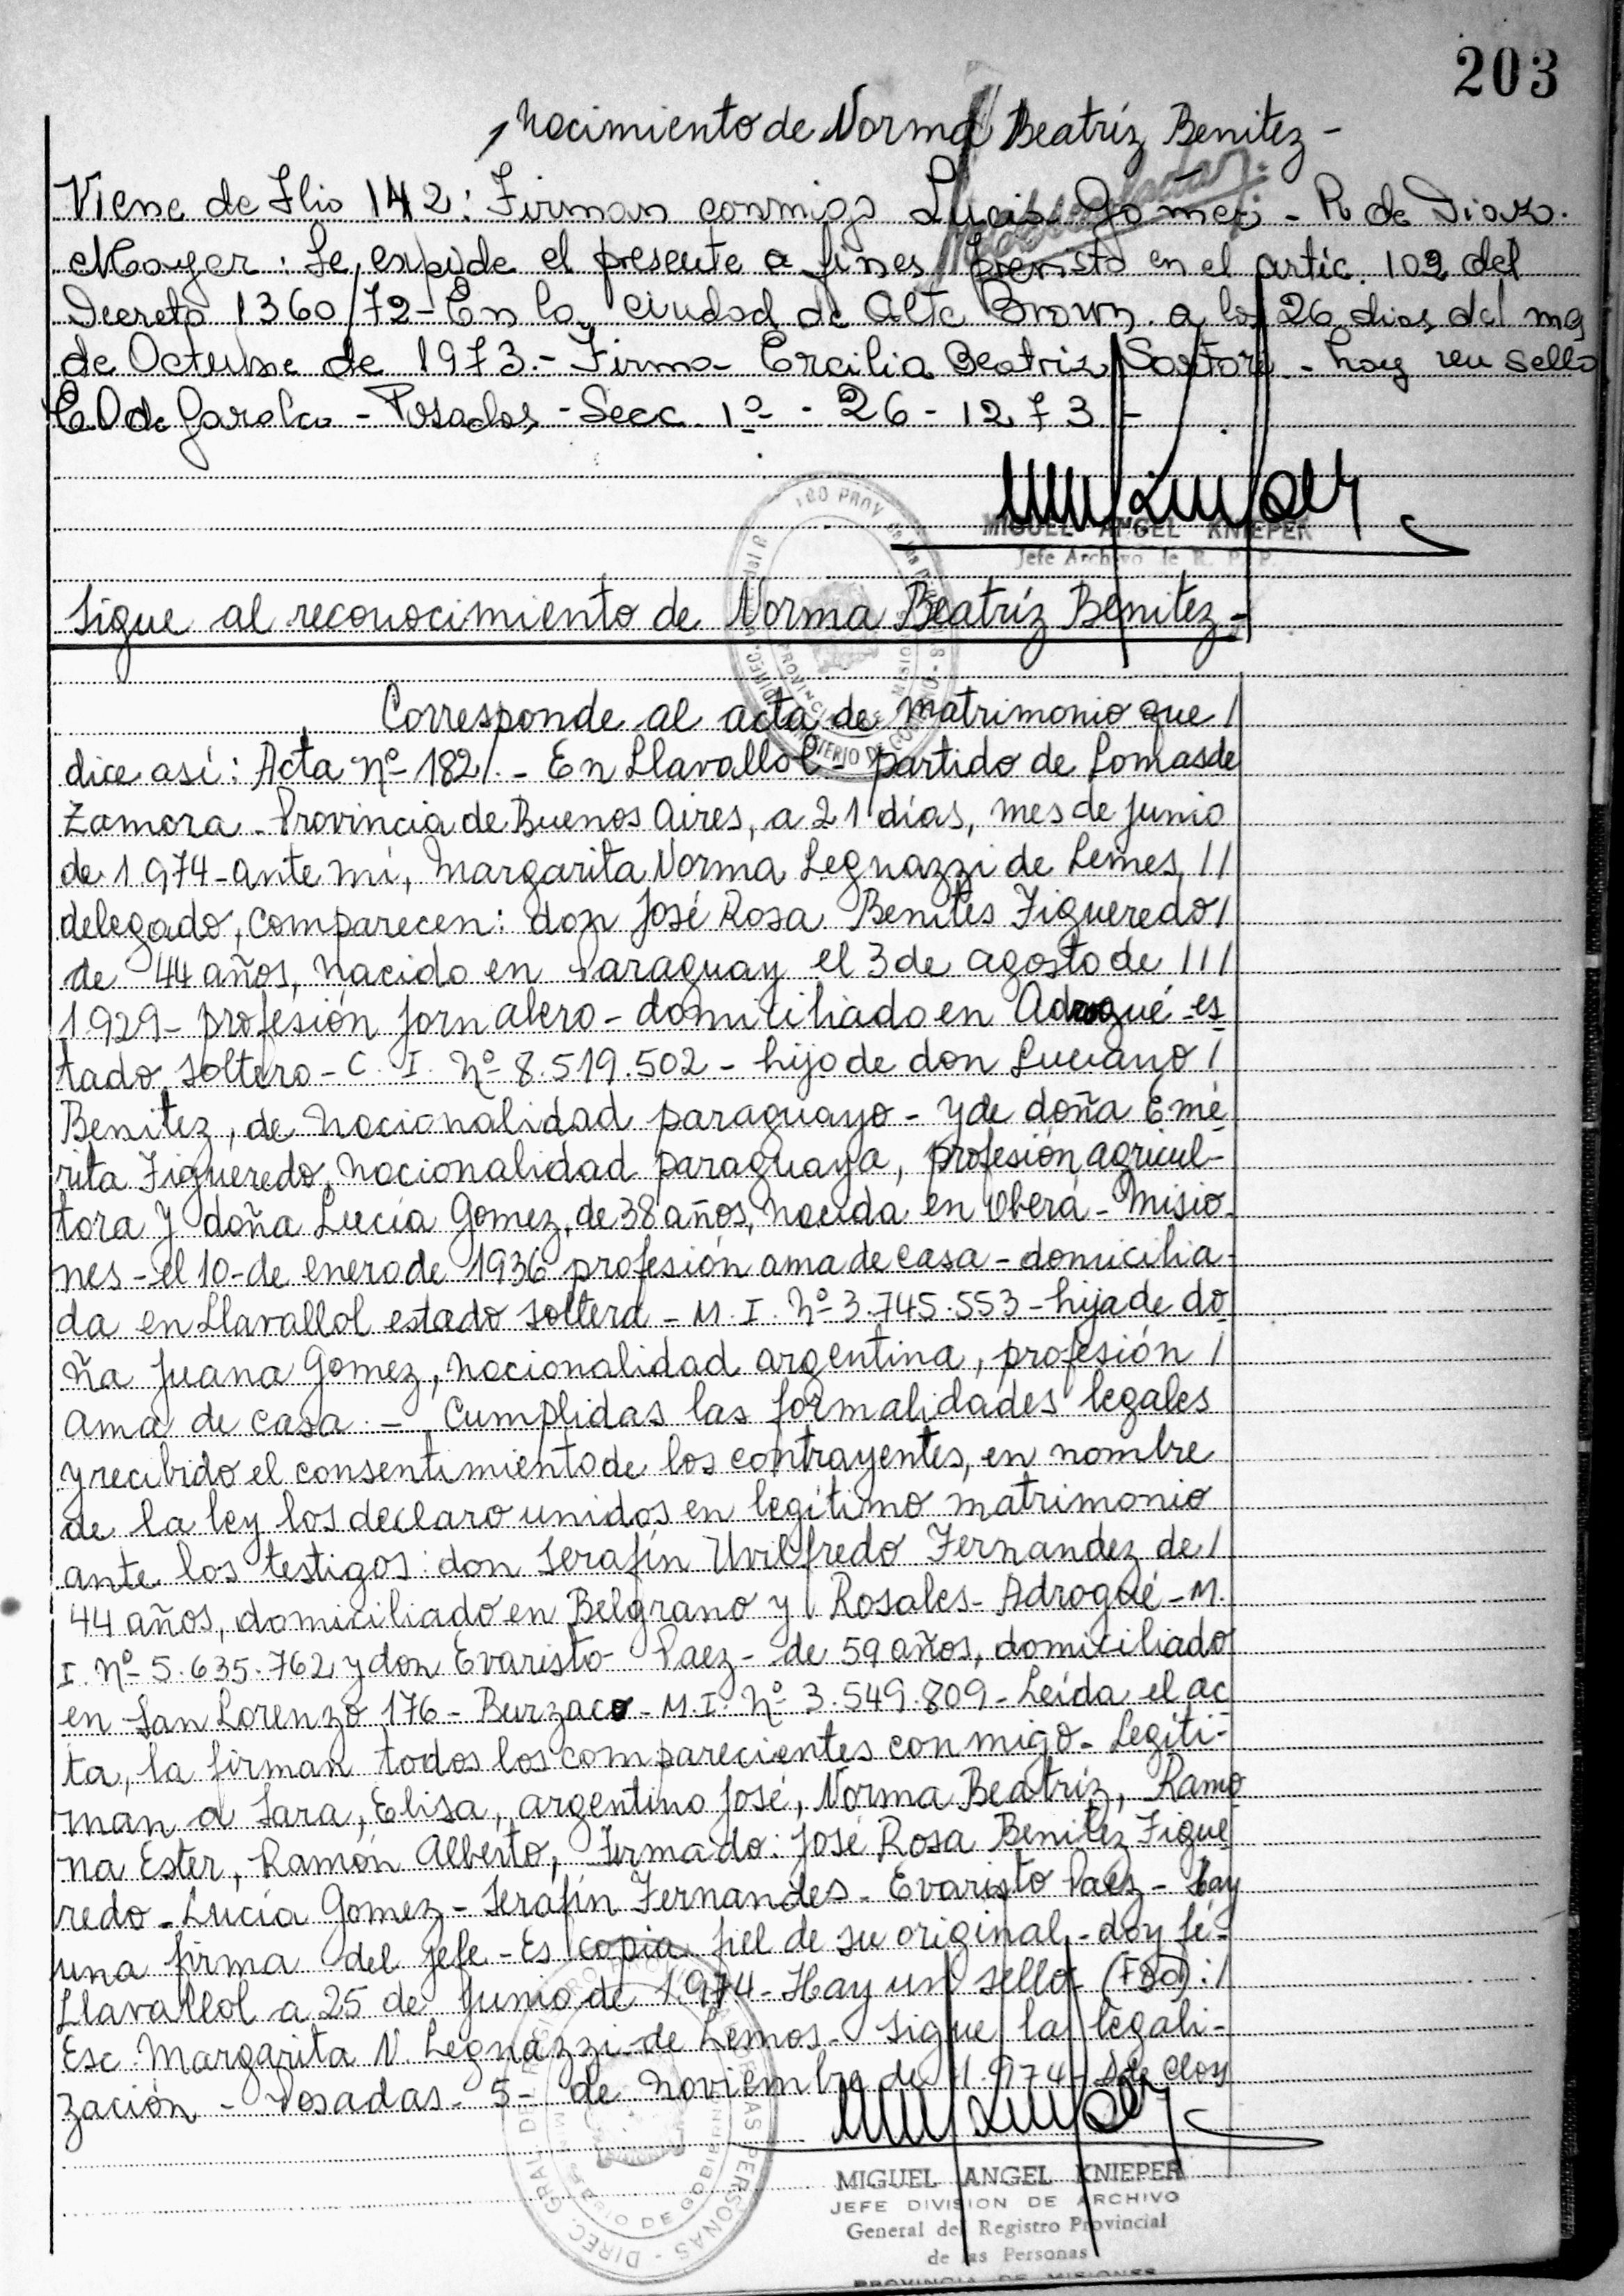 203
nocimiento de Norma Beatríz Benitez -
Viene de Flio 142: Firman conmigo Lucia Gomez - R de Diaz.
Mayer: Se expide el presente a fines previsto en el artic. 102 del
Decreto 1360/72 - En la ciudad de Alte Brown. a los 26 dias del mes
de Octubre de 1973.- Firma - Ercilia Beatriz Sartori - hay un sello
- Posadas, - Secc. 1ª - 26 - 12 73 -
MIGUEL ANGEL KNIEPER
Jefe Archivo de R. P. P.
Sigue al reconocimiento de Norma Beatríz Benitez -
Corresponde al acta de matrimonio que /
dice así: Acta Nº 182/. - En Llavallol - partido de Lomas de
Zamora - Provincia de Buenos Aires, a 21 días, mes de junio
de 1.974 - ante mí, Margarita Norma Legnazzi de Lemes, //
delegado, comparecen: don José Rosa Benites Figueredo /
de 44 años, nacido en Paraguay el 3 de agosto de ///
1929 - profesión jornalero - domiciliado en Adrogué - es
tado soltero - C. I. Nº 8.519.502 - hijo de don Luciano /
Benitez, de nacionalidad paraguayo - y de doña Eme
rita Figueredo, nacionalidad paraguaya, profesión agricul-
tora y doña Lucía Gomez, de 38 años, nacida en Oberá - Misio-
nes - el 10 - de enero de 1936 profesión ama de casa - domicilia-
da en Llavallol estado soltera - M. I. Nº 3.745.553 - hija de do
ña Juana Gomez, nacionalidad argentina, profesión /
ama de casa. - Cumplidas las formalidades legales
y recibido el consentimiento de los contrayentes, en nombre
de la ley los declaro unidos en legítimo matrimonio
ante los testigos: don Serafín Uvilfredo Fernandez de /
44 años, domiciliado en Belgrano y Rosales - Adrogué - M.
I. Nº 5.635.762 y don Evaristo Paez - de 59 años, domiciliado
en San Lorenzo 176 - Burzaco - M.I. Nº 3.549.809 - Leída el ac
ta, la firman todos los comparecientes conmigo - Legiti-
man a Sara, Elisa, argentino José, Norma Beatríz, Ramo
na Ester, Ramón Alberto, Firmado: José Rosa Benitez Figue
redo - Lucía Gomez - Serafín Fernandes - Evaristo Paez - Hay
una firma del jefe - Es copia fiel de su original - doy fé -
Llavallol a 25 de Junio de 1.974 - Hay un sello - (Fdo): /
Esc. Margarita N Legnazzi de Lemos - Sigue la legali-
zación - Posadas - 5 - de noviembre de 1.974 -
MIGUEL ANGEL KNIEPER
JEFE DIVISION DE ARCHIVO
General del Registro Provincial
de las Personas
PROVINCIA DE MISIONES